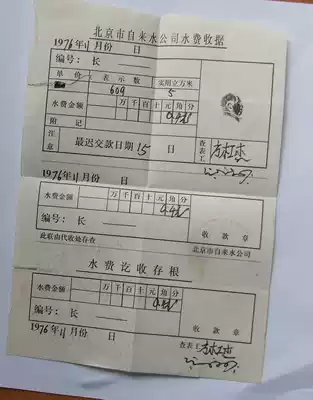 北京市自来水公司水费收据
1976年11月份 日
编号:长
单价 表示数 实用立方米
609 5
水费金额 万千百十元角分
附记
注意 最迟交款日期15日 查表工
1976年11月份 日
水费金额 万千百十元角分
编号:长 收款章
此联由代收处存查 北京市自来水公司
水费讫收存根
水费金额 万千百十元角分
编号:长 收款章
1976年11月份 日 查表工